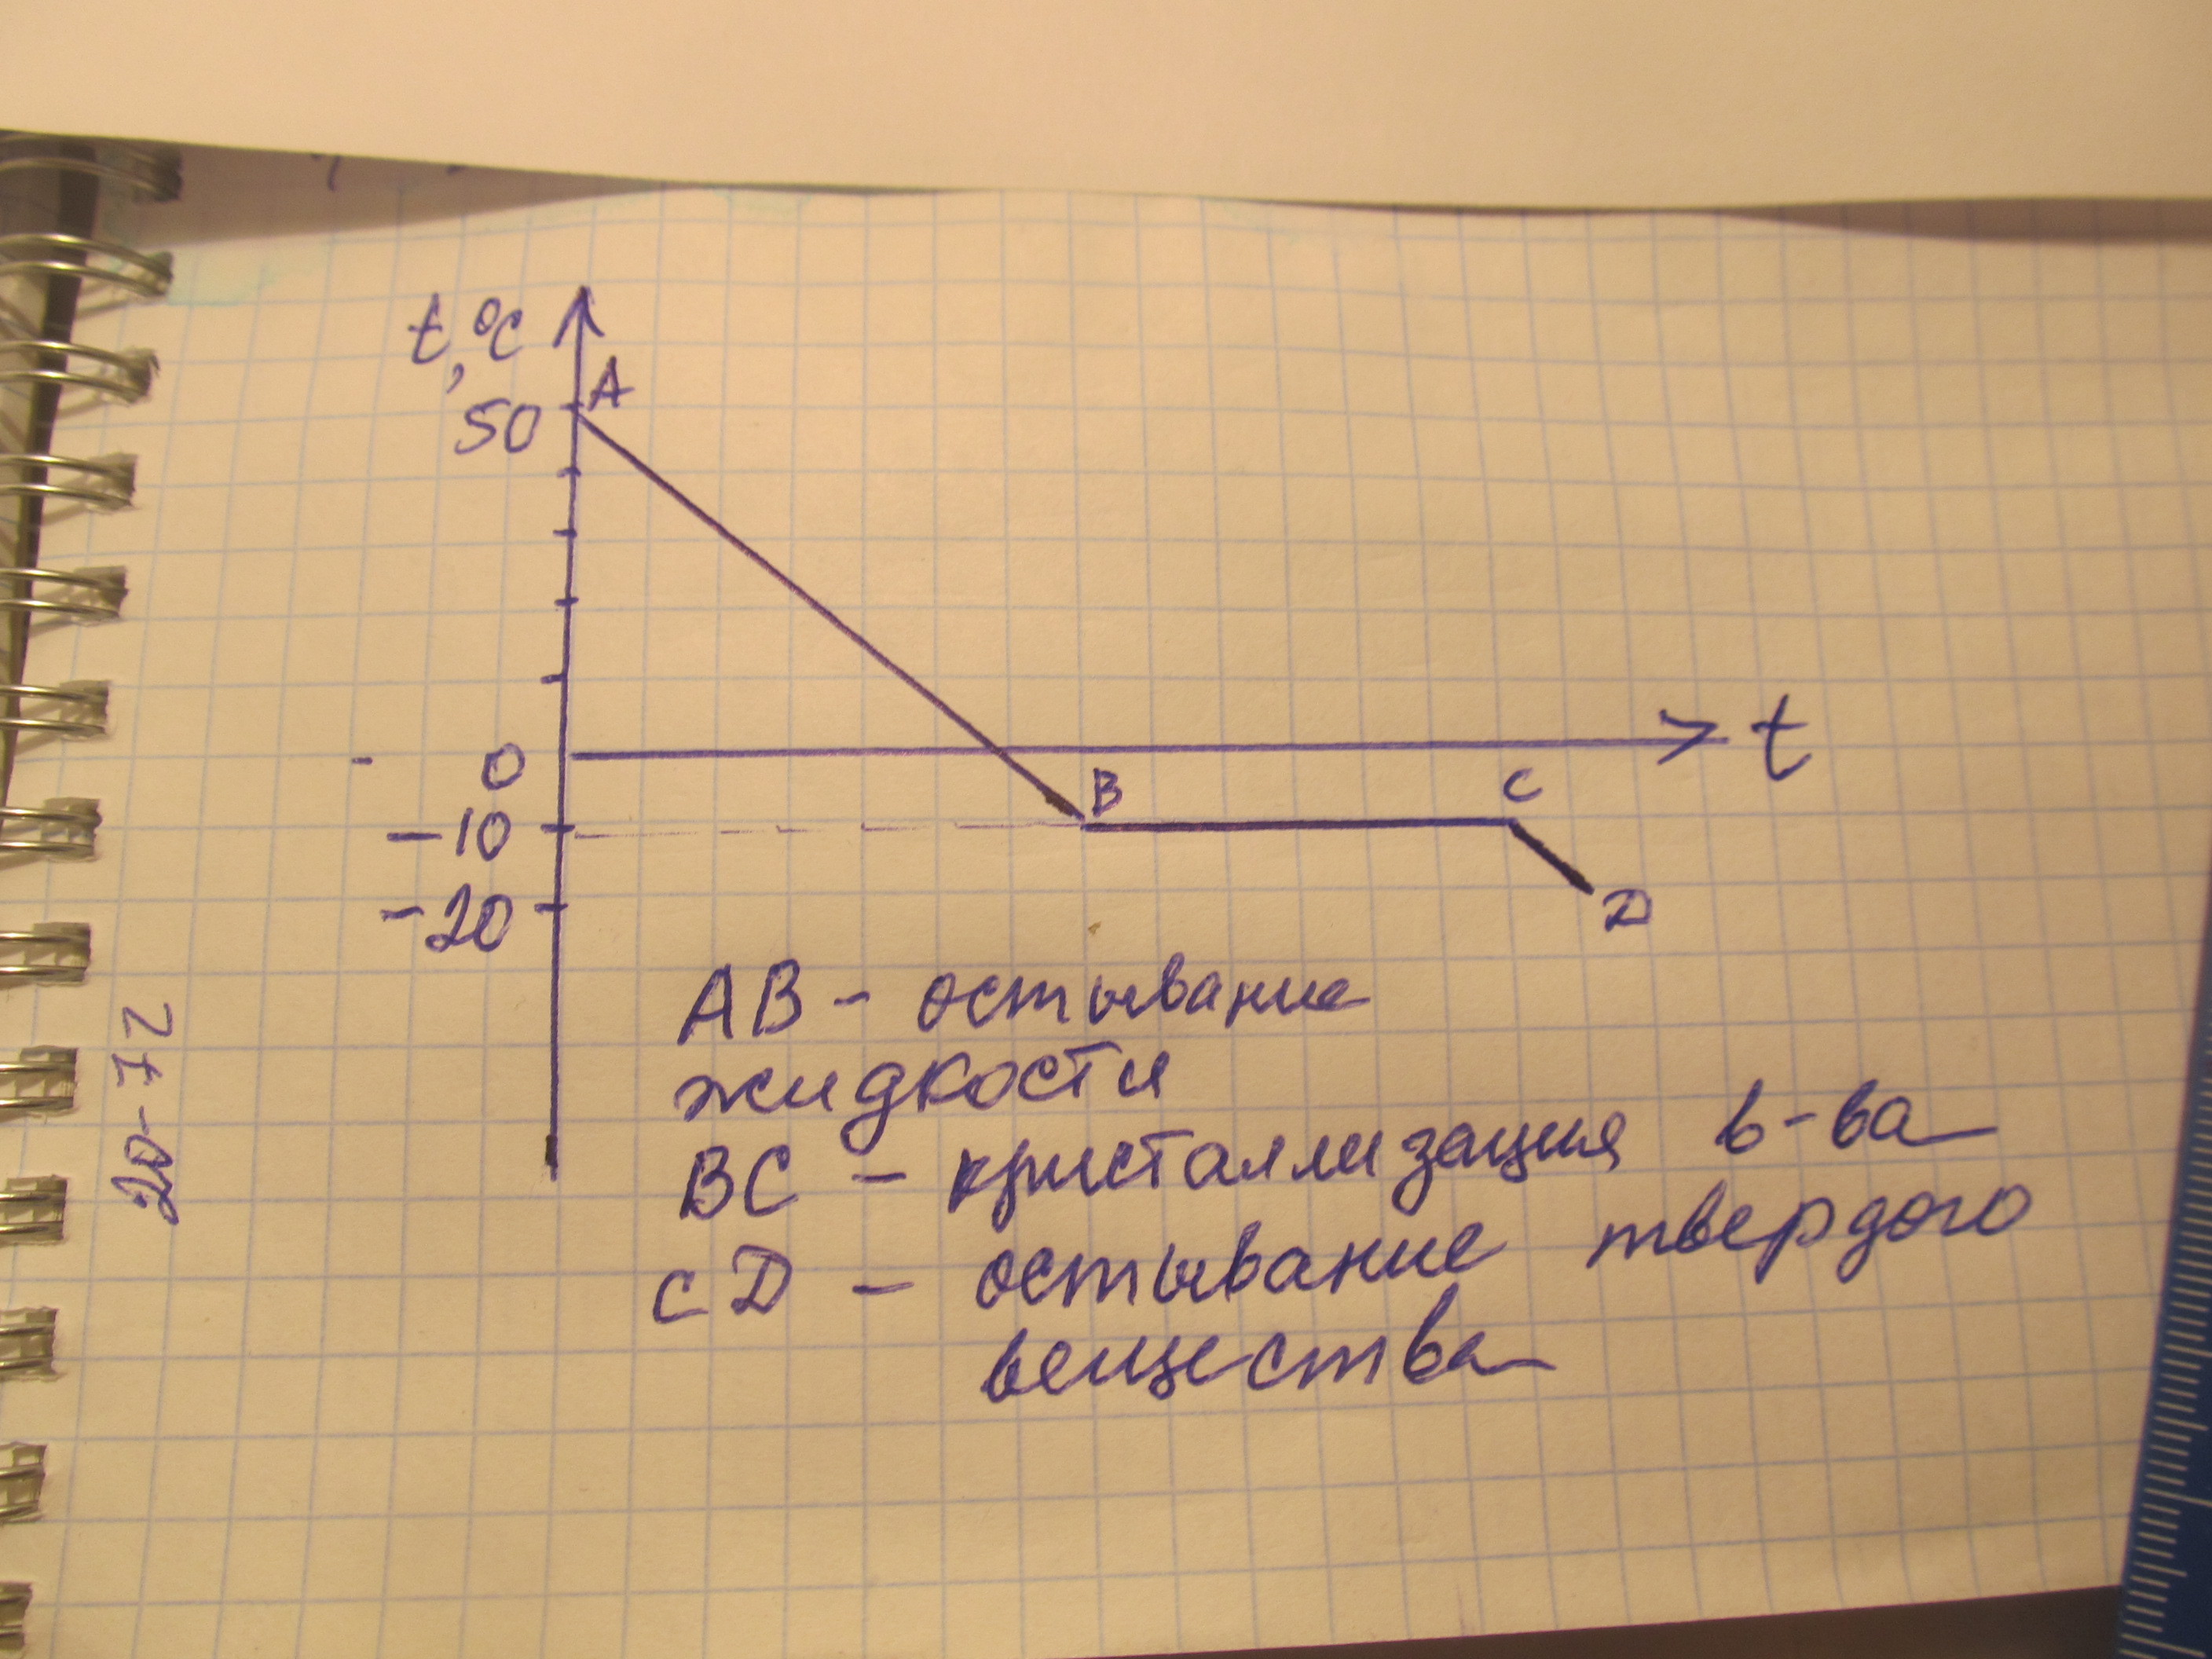 t,°C
A
50
0
t
B
C
-10
-20
D
AB - остывание
жидкости
BC - кристаллизация в-ва
CD - остывание твердого
вещества
20-72